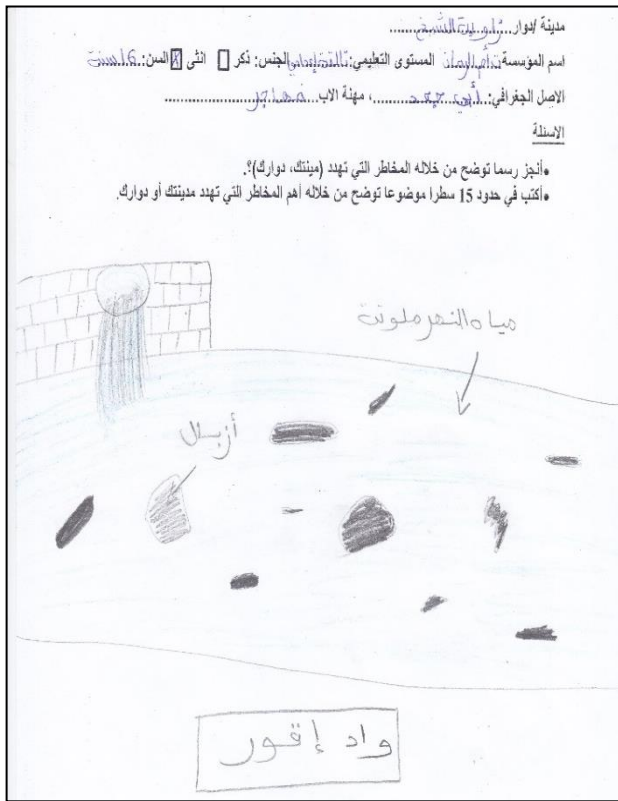 مدينة /دوار.....زاوية الشيخ.....
اسم المؤسسة المستوى التعليمي: الجنس: ذكر انثى X السن: 16 سنة
الاصل الجغرافي:.....، مهنة الاب.....مهاجر.....
الاسئلة
•أنجز رسما توضح من خلاله المخاطر التي تهدد (مينتك، دوارك)؟.
•أكتب في حدود 15 سطرا موضوعا توضح من خلاله أهم المخاطر التي تهدد مدينتك أو دوارك.
مياه النهر ملوثة
أزبال
واد إقور